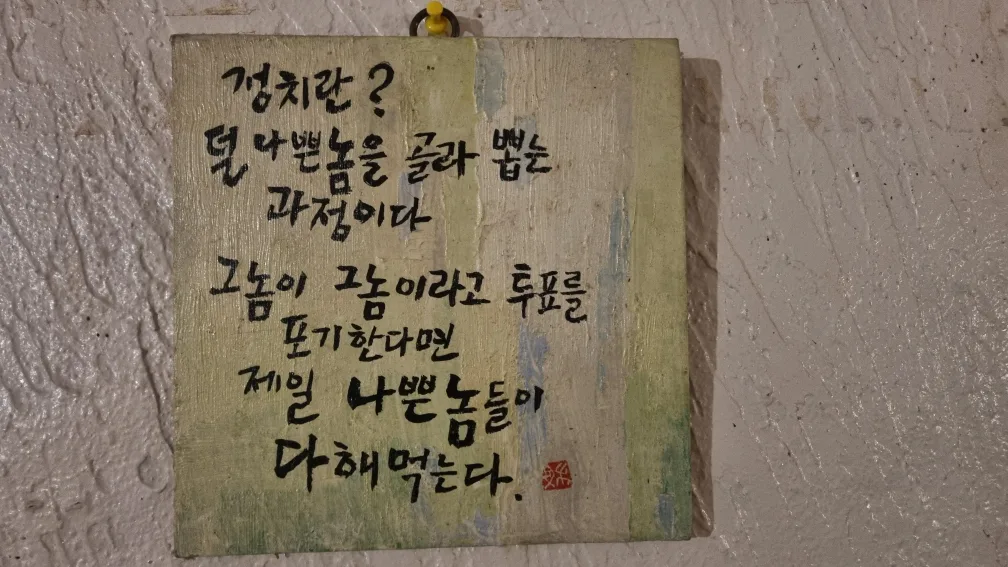 정치란?
덜 나쁜놈을 골라 뽑는
과정이다
그놈이 그놈이라고 투표를
포기한다면
제일 나쁜놈들이
다해먹는다.